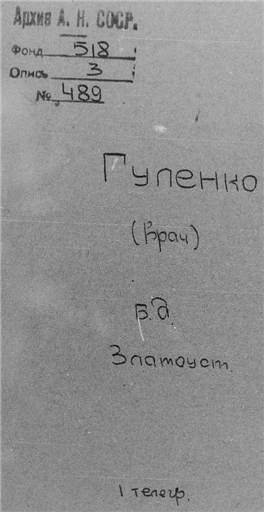 Архив А. Н. СССР.
Фонд 518
Опись 3
№ 489
Гуленко
(Врач)
Б.д
Златоуст.
1 телегр.